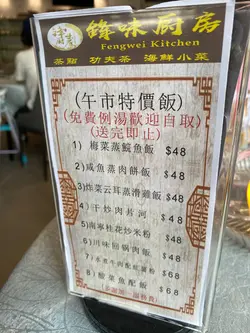 鋒味廚房
Fengwei Kitchen
茶點 功夫茶 海鮮小菜
(午市特價飯)
(免費例湯歡迎自取)
(送完即止)
1) 梅菜蒸鯇魚飯 $48
2) 咸魚蒸肉餅飯 $48
3) 炸菜云耳蒸滑雞飯 $48
4) 干炒肉片河 $48
5) 南寧桂花炒米粉 $48
6) 川味回鍋肉飯 $48
$68
8) 酸菜魚配飯 $68